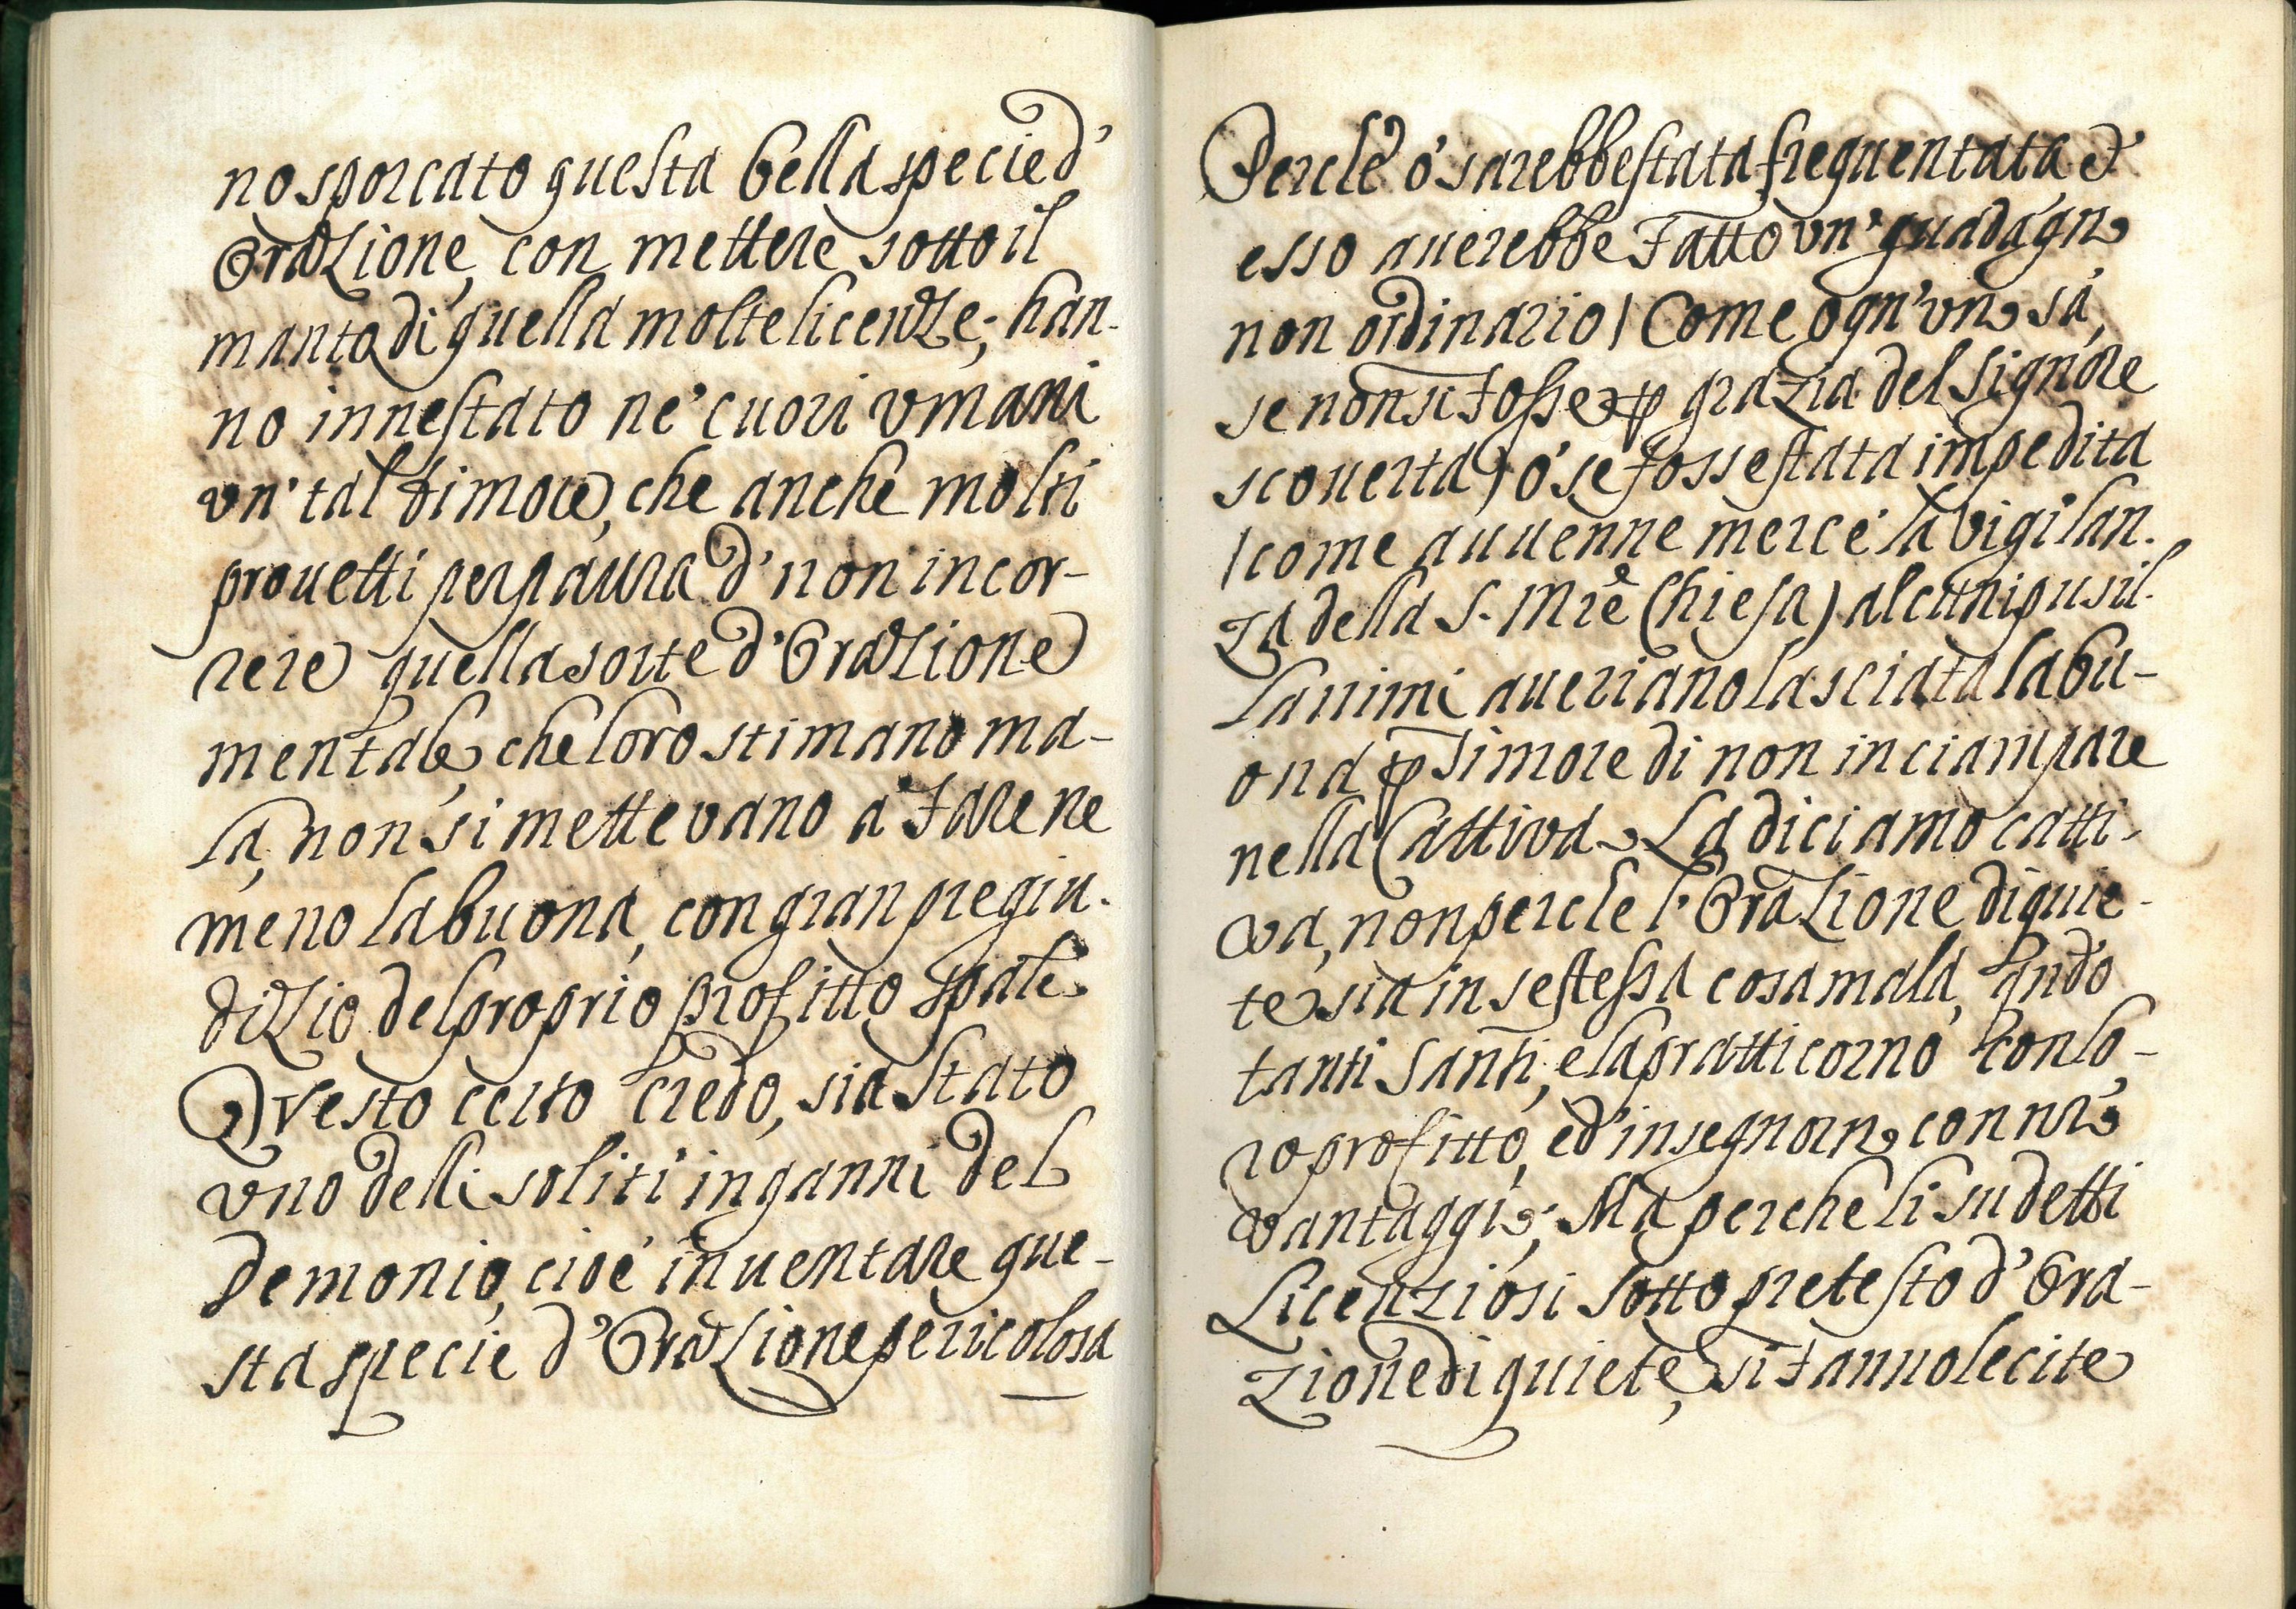 no sporcato questa bella specie d'
Orazione, con mettere sotto il
manto di quella molte licenze; han-
no innestato ne' cuori vmani
vn' tal timore, che anche molti
prouetti per paura d' non incor-
rere quella sorte d'Orazione
mentale, che loro stimano ma-
la, non si mettevano à fare ne
meno la buona, con gran pregiu-
dizio del proprio profitto spāle.
Qvesto certo credo, sia stato
vno delli soliti inganni del
Demonio, cioè inuentare que-
sta specie d'Orazione pericolosa
Perche ò sarebbe stata frequentata, et
esso auerebbe fatto vn' guadagno
non ordinario / Come ogn'vno sà,
se non si fosse p grazia del Signore
scouerta) ò se fosse stata impedita
/ come auuenne mercè la vigilan-
za della S. Mrē Chiesa) alcuni pusil-
lanimi aueriano lasciata la bu-
ona p timore di non inciampare
nella Cattiva. La diciamo catti-
va, non perche l'Orazione di quie-
te sia in se stessa cosa mala, qndo
tanti Santi, e la pratticorno con lo-
ro profitto, ed' insegnorno con nrō
vantaggio; Ma perche li sudetti
Licenziosi sotto pretesto d'Ora-
zione di quiete, si fanno lecite